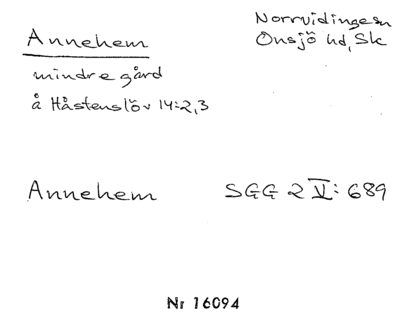 Annehem
Norrvidinge sn
Onsjö hd, Sk
mindre gård
å Håstenslöv 14:2,3
Annehem SGG 2 V: 689
Nr 16094